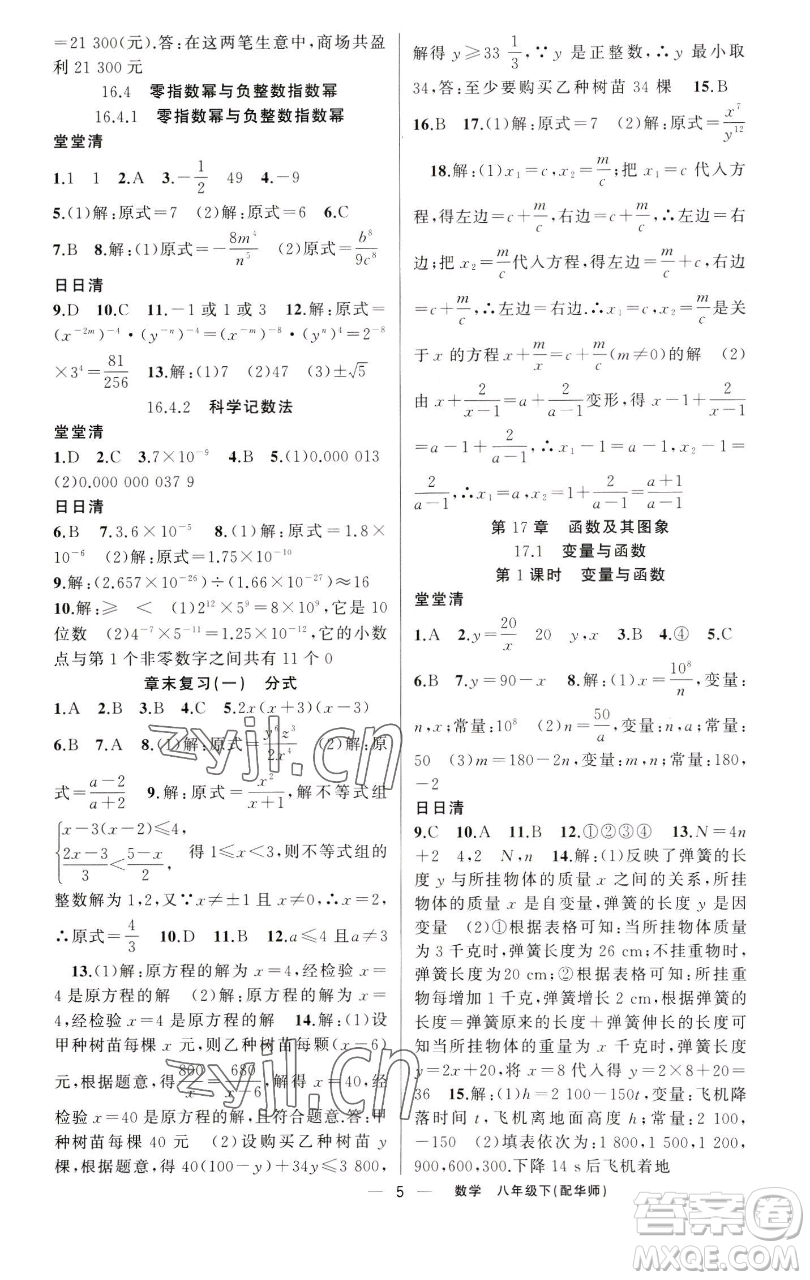 =21 300(元).答:在这两笔生意中,商场共盈
利 21 300 元
16.4 零指数幂与负整数指数幂
16.4.1 零指数幂与负整数指数幂
堂堂清
1.1 1 2.A 3.-1/2 49 4.-9
5.(1)解:原式=7 (2)解:原式=6 6.C
7.B 8.解:(1)原式=-8m⁴/n⁵ (2)原式=b⁸/9c⁸
日日清
9.D 10.C 11.-1 或 1 或 3 12.解:原式=
(x⁻²ᵐ)⁻⁴·(y⁻ⁿ)⁻⁴=(xᵐ)⁸·(yⁿ)⁴=2⁻⁸
×3⁴=81/256 13.解:(1)7 (2)47 (3)±√5
16.4.2 科学记数法
堂堂清
1.D 2.C 3.7×10⁻⁹ 4.B 5.(1)0.000 013
(2)0.000 000 037 9
日日清
6.B 7.3.6×10⁻⁵ 8.(1)解:原式=1.8×
10⁻⁶ (2)解:原式=1.75×10⁻¹⁰
9.解:(2.657×10⁻²⁶)÷(1.67×10⁻²⁷)≈16
10.解:≥ < (1)2¹²×5⁹=8×10⁹,它是 10
位数 (2)4⁻⁷×5⁻¹¹=1.25×10⁻¹²,它的小数
点与第 1 个非零数字之间共有 11 个 0
章末复习(一) 分式
1.A 2.B 3.B 4.C 5.2x(x+3)(x-3)
6.B 7.A 8.(1)解:原式=y⁶z³/2x⁴ (2)解:原
式=a-2/a+2 9.解:原式=x²/x+1,解不等式组
{x-3(x-2)≤4,
2x-3/3<5-x/2, 得 1≤x<3,则不等式组的
整数解为 1,2,又∵x≠±1 且 x≠0,∴x=2,
∴原式=4/3 10.D 11.B 12.a≤4 且 a≠3
13.(1)解:原方程的解为 x=4,经检验 x=4
是原方程的解 (2)解:原方程的解为 x=
4,经检验 x=4 是原方程的解 14.解:(1)设
甲种树苗每棵 x 元,则乙种树苗每颗(x-6)
元,根据题意,得800/x=680/x-6,解得 x=40,经
检验 x=40 是原方程的解,且符合题意.答:甲
种树苗每棵 40 元 (2)设购买乙种树苗 y
棵,根据题意,得 40(100-y)+(40-6)y≤3 800,
解得 y≥33 1/3,∵y 是正整数,∴y 最小取
34,答:至少要购买乙种树苗 34 棵 15.B
16.B 17.(1)解:原式=7 (2)解:原式=x⁷/y¹²
18.解:(1)x₁=c,x₂=m/c;把 x₁=c 代入方
程,得左边=c+m/c,右边=c+m/c,∴左边=右
边;把 x₂=m/c代入方程,得左边=m/c+c,右边
=c+m/c,∴左边=右边.∴x₁=c,x₂=m/c是关
于 x 的方程 x+m/x=c+m/c(m≠0)的解 (2)
由 x+2/x-1=a+2/a-1变形,得 x-1+2/x-1
=a-1+2/a-1,∴x₁-1=a-1,x₂-1=
2/a-1,∴x₁=a,x₂=1+2/a-1=a+1/a-1
第 17 章 函数及其图象
17.1 变量与函数
第 1 课时 变量与函数
堂堂清
1.A 2.y=20/x 20 y,x 3.B 4.④ 5.C
6.B 7.y=90-x 8.解:(1)x=10⁸/n,变量:
n,x;常量:10⁸ (2)n=50/a,变量:n,a;常量:
50 (3)m=180-2n,变量:m,n;常量:180,
-2
日日清
9.C 10.A 11.B 12.①②③④ 13.N=4n
+2 4,2 N,n 14.解:(1)反映了弹簧的长
度 y 与所挂物体的质量 x 之间的关系,所挂
物体的质量 x 是自变量,弹簧的长度 y 是因
变量 (2)①根据表格可知:当所挂物体质量
为 3 千克时,弹簧长度为 26 cm;不挂重物时,
弹簧长度为 20 cm;②根据表格可知:所挂重
物每增加 1 千克,弹簧增长 2 cm,根据弹簧
的长度=弹簧原来的长度+弹簧伸长的长度可
知:当所挂物体的重量为 x 千克时,弹簧长度
y=2x+20,将 x=8 代入得 y=2×8+20=
36 15.解:(1)h=2 100-150t,变量:飞机降
落时间 t,飞机离地面高度 h;常量:2 100,
-150 (2)填表依次为 1 800,1 500,1 200,
900,600,下降 14 s 后飞机着地
5 数学 八年级下(配华师)
zyjl.cn
zyjl.cn
答案圈
MXQE.COM